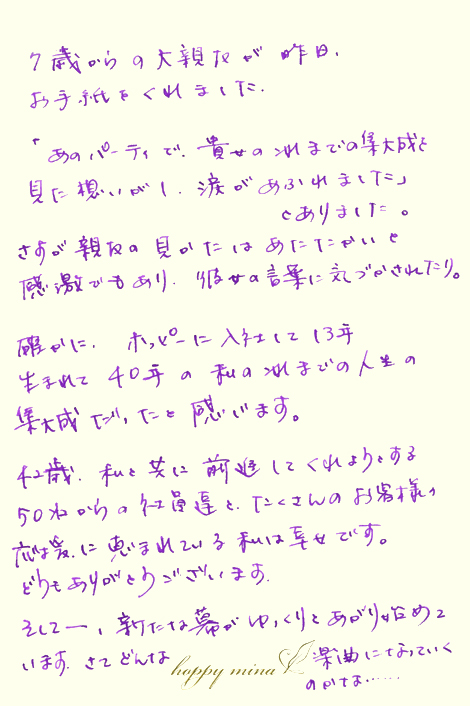 7歳からの大親友が昨日、
お手紙をくれました。
「あのパーティで、貴女のこれまでの集大成を
見た想いがし、涙があふれました」
とありました。
さすが親友の見かたはあたたかいと
感激でもあり、彼女の言葉に気づかされたり。
確かに、ホッピーに入社して13年
生まれて40年の私のこれまでの人生の
集大成だったと感じます。
42歳、私と共に前進してくれようとする
50名からの社員達と、たくさんのお客様の
応援に恵まれている私は幸せです。
どうもありがとうございます。
そして一、新たな幕がゆっくりとあがり始めて
います。さてどんな
楽曲になっていく
のかな……
hoppy mina